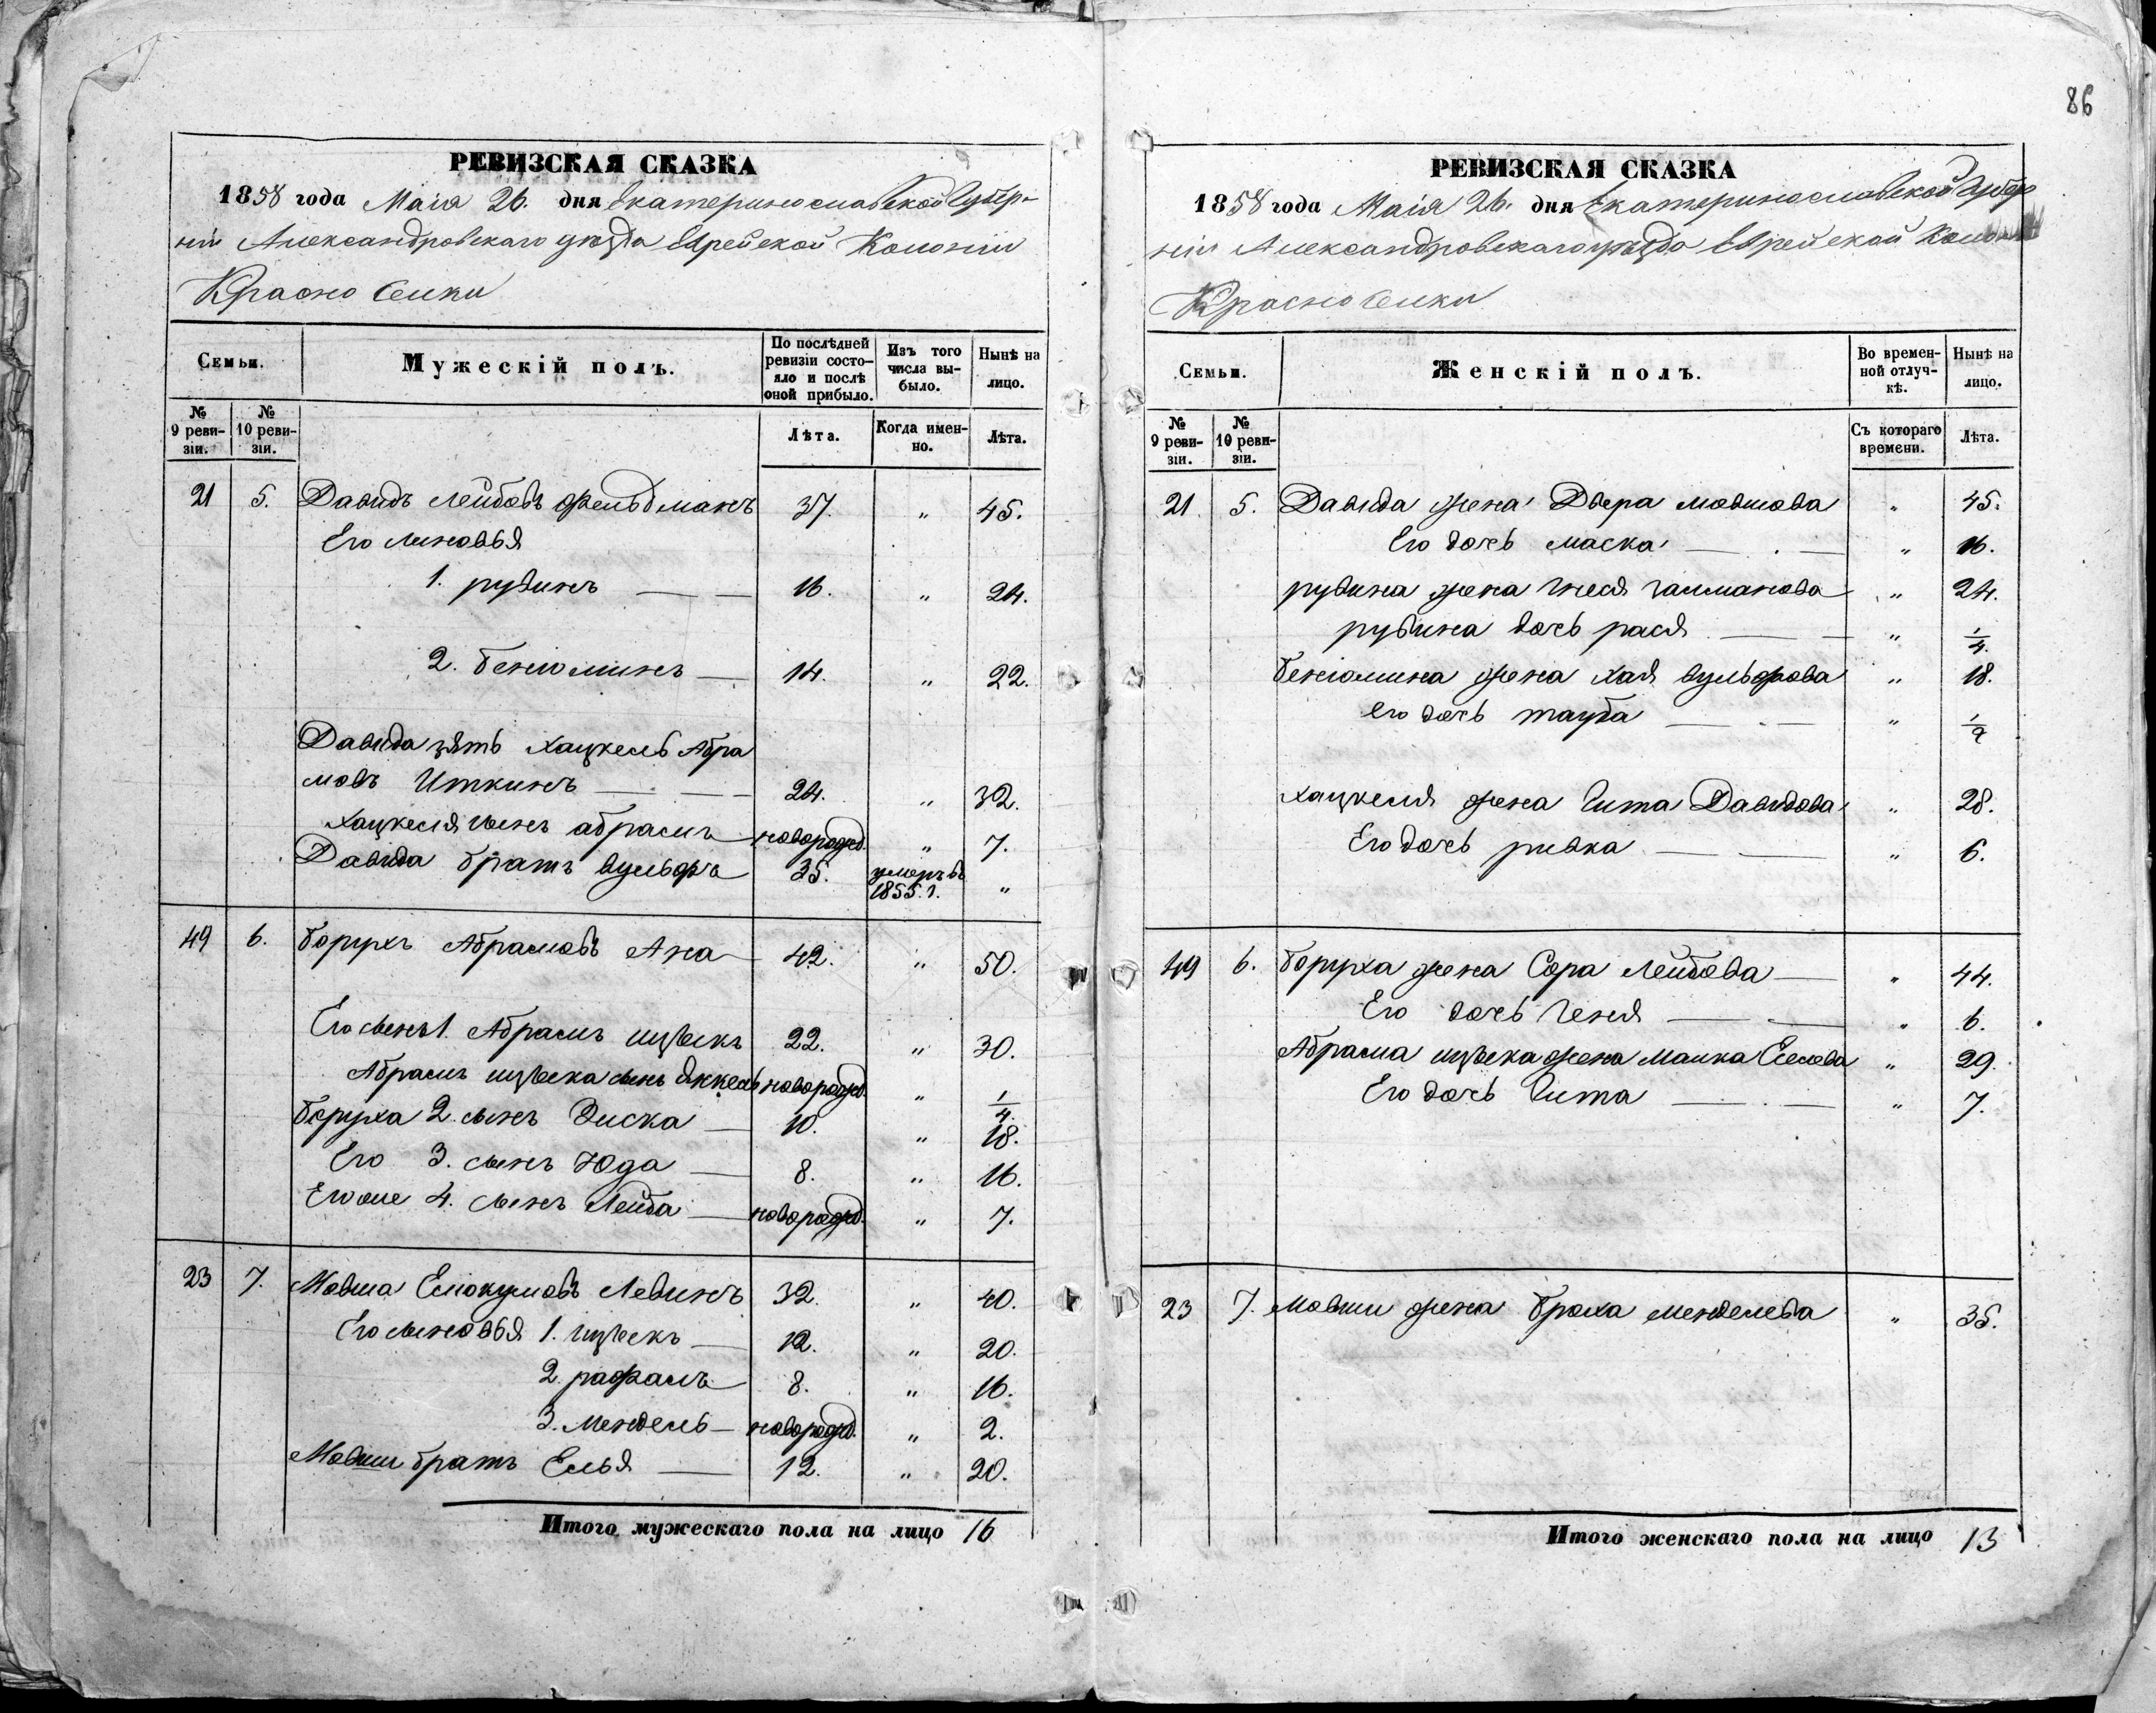 86
РЕВИЗСКАЯ СКАЗКА
1858 года Маія 26. дня Екатеринославской Губер-
ніи Александровскаго уѣзда Еврейской Колоніи
Красноселки
Семьи.
Мужескій полъ.
По послѣдней ревизіи состояло и послѣ оной прибыло.
Изъ того числа выбыло.
Нынѣ на лицо.
№ 9 ревизіи.
№ 10 ревизіи.
Лѣта.
Когда именно.
Лѣта.
21 5. Давидъ Лейбовъ Фельдманъ 37. " 45.
Его сыновья
1. рувинъ 16. " 24.
2. Беніоминъ 14. " 22.
Давида зять Хацкель Абра
мовъ Иткинъ 24. " 32.
Хацкеля сынъ абрамъ новорожд. " 7.
Давида братъ вульфъ 35. умеръ въ 1855. г. "
49 6. Борухъ Абрамовъ Ана 42. " 50.
Его сынъ 1. Абрамъ ицъекъ 22. " 30.
Абрамъ ицъека сынъ Янкель новорожд. " 1/4.
Боруха 2. сынъ Зиска 10. " 18.
Его 3. сынъ Юда 8. " 16.
Его же 4. сынъ Лейба новорожд. " 7.
23 7. Мовша Еліокумовъ Левинъ 32. " 40.
Его сыновья 1. ицъекъ 12. " 20.
2. рафаилъ 8. " 16.
3. Мендель новорожд. " 2.
Мовши братъ Елья 12. " 20.
Итого мужескаго пола на лицо 16
РЕВИЗСКАЯ СКАЗКА
1858 года Маія 26. дня Екатеринославской Губер
ніи Александровскаго уѣзда Еврейской Колоніи
Красноселки
Семьи.
Женскій полъ.
Во временной отлучкѣ.
Нынѣ на лицо.
№ 9 ревизіи.
№ 10 ревизіи.
Съ котораго времени.
Лѣта.
21. 5. Давида жена Двера мовшова " 45.
Его дочь маска " 16.
рувина жена Гнеся Галманова " 24.
рувина дочь рася " 1/4.
Беніомина жена хая вульфова " 18.
его дочь тауба " 1/2
хацкеля жена Гита Давидова " 28.
Его дочь ривка " 6.
49 6. Боруха жена Сора Лейбова " 44.
Его дочь Геня " 6.
Абрама ицъека жена Малка Еселева " 29.
Его дочь Гита " 7.
23 7. Мовши жена Броха менделева " 35.
Итого женскаго пола на лицо 13